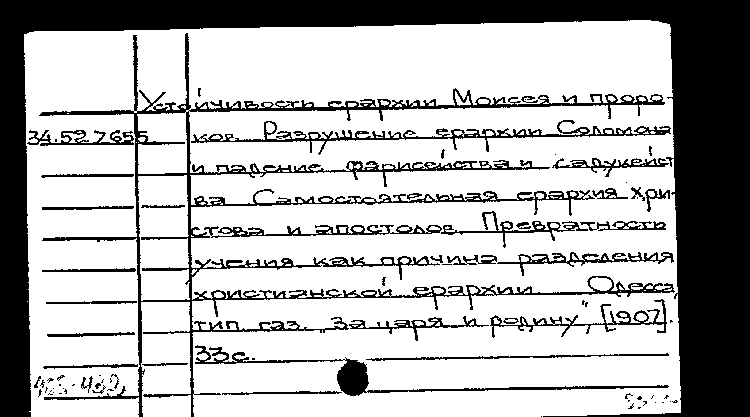 Устойчивости ерархии Моисея и проро-
34.52.7655 ков. Разрушение ерархии Соломона
и падение фарисейства и садукейст
ва Самостоятельная ерархия Хри-
стова и апостолов. Превратность
учения как причина разделения
христианской ерархии Одесса,
тип. газ. „За царя и родину", [1907].
33с.